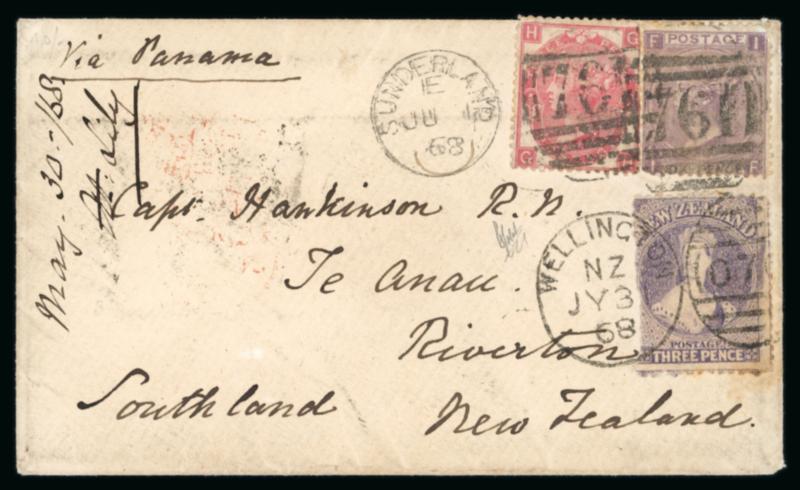 Via Panama
May. 30-/68
SUNDERLAND
E
JU
68
H G
G
761
F POSTAGE I
F
760
Capt. Hankinson R.N.
Te Anau.
Riverton
Southland
New Zealand.
WELLINGTON
NZ
JY 3
68
NEW ZEALAND
POSTAGE
THREE PENCE
070